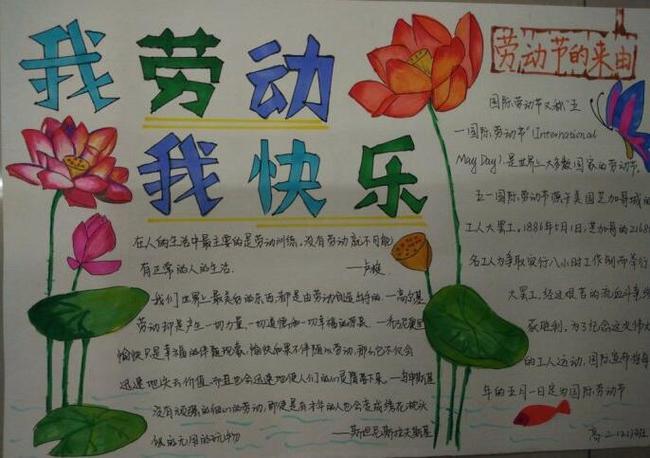 我劳动
我快乐
在人的生活中最主要的是劳动训练,没有劳动就不可能
有正常的人的生活.
——卢梭
我们世界上最美好的东西,都是由劳动创造出来的.—高尔基
劳动却是产生一切力量、一切道德和一切幸福的源泉.
愉快只是幸福的伴随现象,愉快如果不伴随以劳动,那么它不仅会
迅速地失去价值,而且也会迅速地使人们的心灵堕落下来.
没有顽强的细心的劳动,即使是有才华的人也会变成绣花枕头
似的无用的玩物
——斯坦尼斯拉夫斯基
劳动节的来由
国际劳动节又称“五
一国际劳动节”(International
May Day),是世界上大多数国家的劳动节.
五一国际劳动节源于美国芝加哥城的
工人大罢工,1886年5月1日,芝加哥的2168
名工人为争取实行八小时工作制而举行
大罢工,经过艰苦的流血斗争
获胜利,为了纪念这次伟大
的工人运动,国际
年的五月一日定为国际劳动节
高二